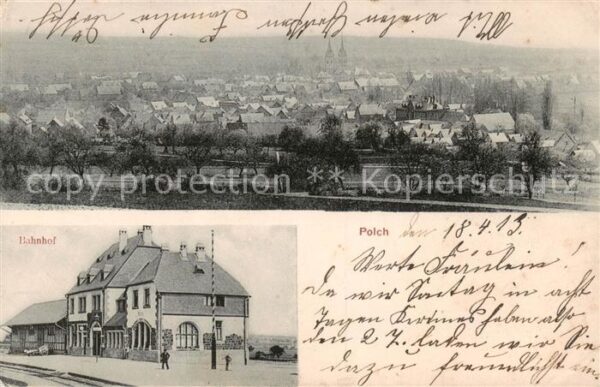 Bahnhof
Polch den 18.4.13.
Werte Fräulein!
Da wir Sontag in acht
Tagen Kirlmes haben also
den 27. laden wir Sie
dazu freundlichst ein.
** copy protection ** Kopierschutz **